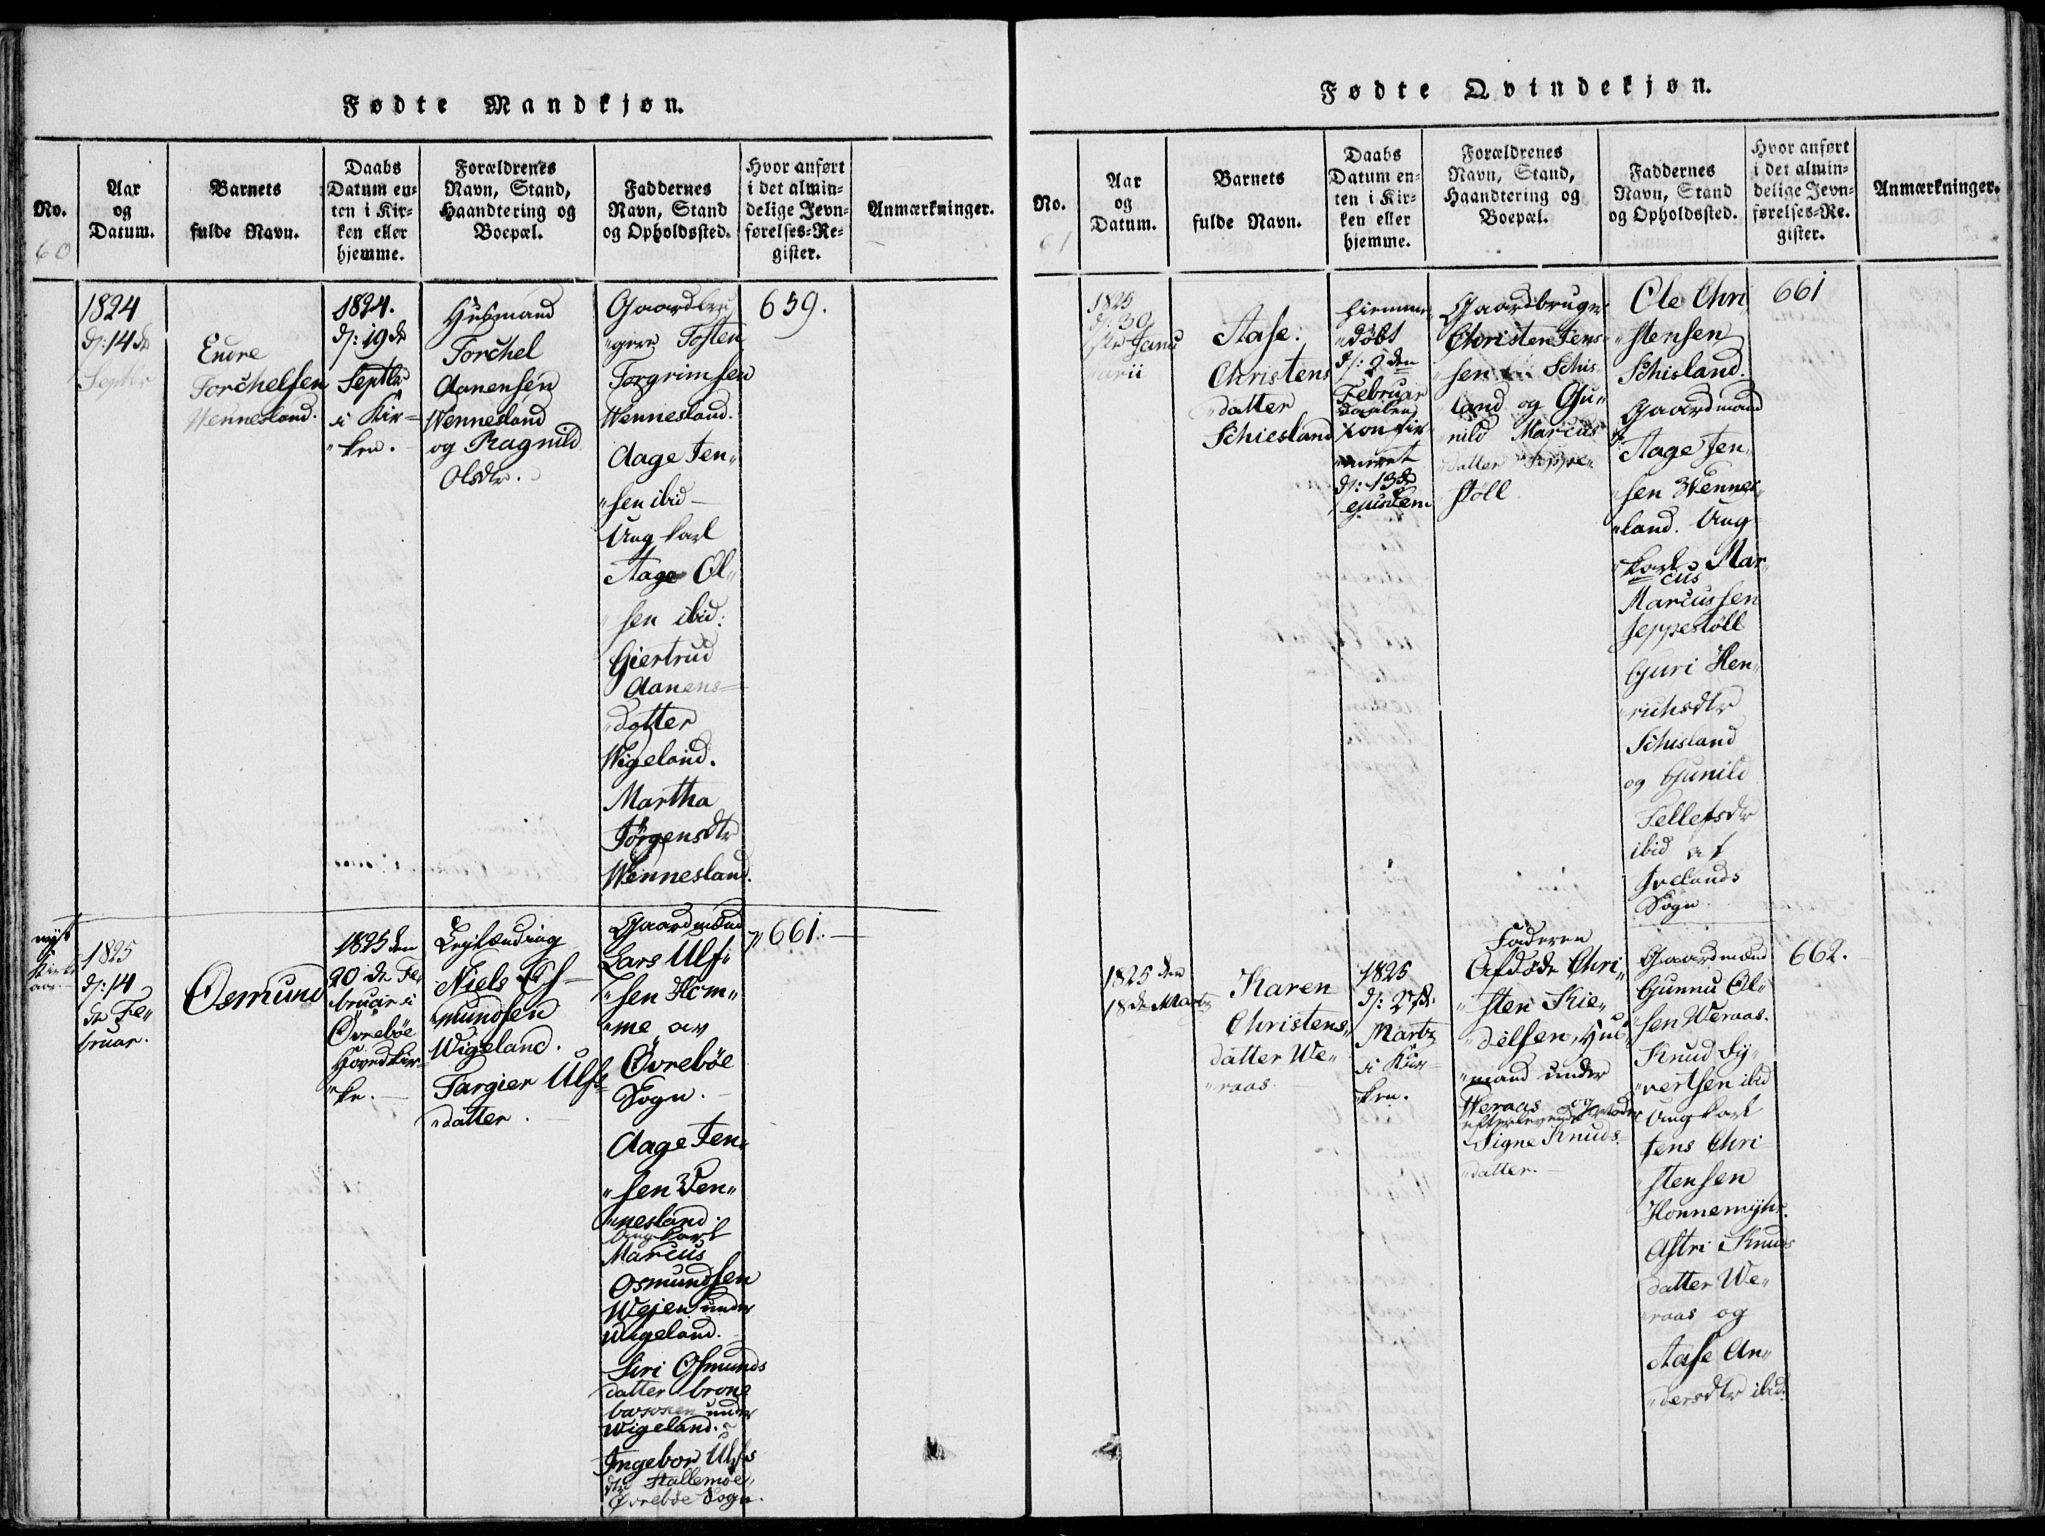 Fødte Mandkjøn.
No.
60
Aar
og
Datum.
Barnets
fulde Navn.
Daabs
Datum en-
ten i Kir-
ken eller
hjemme.
Forældrenes
Navn, Stand,
Haandtering og
Boepæl.
Faddernes
Navn, Stand
og Opholdssted.
Hvor anført
i det almin-
delige Jevn-
førelses-Re-
gister.
Anmærkninger.
1824
d: 14 de
Septbr
Endre
Torchelsen
Wennesland.
1824.
d: 19 de
Septbr
i Kir-
"ken.
Husmand
Torchel
Aanensen
Wennesland
og Ragnild
Olsdtr.
Gaardbru
"gere Tosten
Torgrimsen
Wennesland.
Aage Jen"
"sen ibid
Ung karl
Aage Ol"
"sen ibid:
Giertrud
Aanens=
"datter
Wigeland.
Martha
Jörgensdtr
Wennesland.
659.
nyt
Kirke
aar
1825
d: 14
de Fe"
bruar.
Osmund
1825 den
20 de Fe"
bruar i
Övrebøe
Hovedkir"
"ke.
Leylænding
Niels Os-
mundsen
Wigeland.
Targier Ulfs
"datter.
Gaardmænd
Lars Ulf"
"sen Hom"
"me av
Övrebøe
Sogn.
Aage Jen"
"sen Ven"
"nesland.
Ung karl
Marcus
Osmundsen
Wejen under
Wigeland.
Siri Osmunds
datter
under
Wigeland.
Ingebor Ulfs
dtr Stallemoe
Övrebøe Sogn.
661.
Fødte Qvindekjøn.
No.
61
Aar
og
Datum.
Barnets
fulde Navn.
Daabs
Datum en-
ten i Kir-
ken eller
hjemme.
Forældrenes
Navn, Stand,
Haandtering og
Boepæl.
Faddernes
Navn, Stand
og Opholdssted.
Hvor anført
i det almin-
delige Jevn-
førelses-Re-
gister.
Anmærkninger.
1825
d: 30
Janu
arii
Aase.
Christens
"datter
Schiesland
hiemme
"döbt
d: 2 den
Februar
Daaben
Konfir
"meret
d: 13 de
ejusdem
Gaardbruger
Christen Jens"
"sen Schis"
land og Gu"
nild Marcus
"datter Jeppe"
stöll
Ole Chri
"stensen
Schisland.
Gaardmand
Aage Jen"
"sen Wennes"
"land. Ung
"karl Mar"
cus
Marcussen
Jeppestöll
Guri Hen"
"richsdtr
Schisland
og Gunild
Tellefsdtr
ibid af
Ivelands
Sogn.
661
1825 den
18 de Marts
Karen
Christens"
datter We"
"raas.
1825
d: 27 de
Marts
i Kir"
"ken.
Faderen
Afdöde Chri"
"sten Kie"
"delsen, Huus
"mand under
Weraas og
efterlevende Moder
Signe Knuds
"datter.
Gaardmænd
Gunnu Ol"
"sen Weraas.
Knud Sy"
"vertsen ibid
Ung karl
Jens Chri
"stensen
Honnemyhr.
Astri Knuds
datter We"
"raas og
Aase An"
"dersdtr ibid.
662.